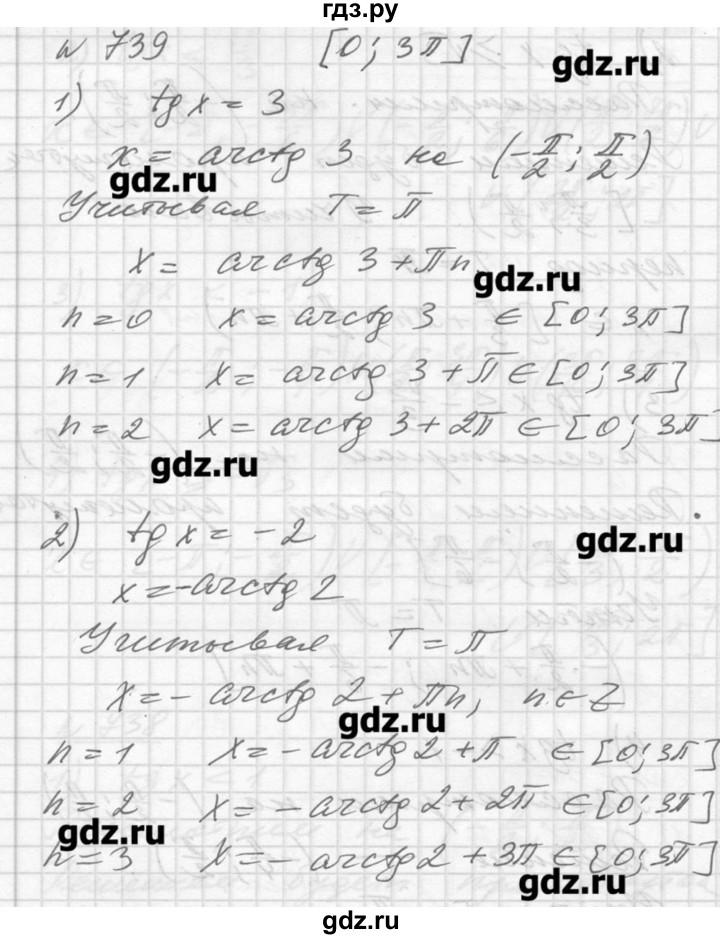 гдз.ру
№ 739 [0; 3π]
gdz.ru
1) tg x = 3
x = arctg 3 на (-π/2; π/2)
gdz.ru
Учитывая T = π
x = arctg 3 + πn
gdz.ru
n = 0 x = arctg 3 ∈ [0; 3π]
n = 1 x = arctg 3 + π ∈ [0; 3π]
n = 2 x = arctg 3 + 2π ∈ [0; 3π]
gdz.ru
2) tg x = -2
gdz.ru
x = -arctg 2
Учитывая T = π
x = -arctg 2 + πn, n ∈ Z
gdz.ru
n = 1 x = -arctg 2 + π ∈ [0; 3π]
n = 2 x = -arctg 2 + 2π ∈ [0; 3π]
gdz.ru
n = 3 x = -arctg 2 + 3π ∈ [0; 3π]
gdz.ru
gdz.ru